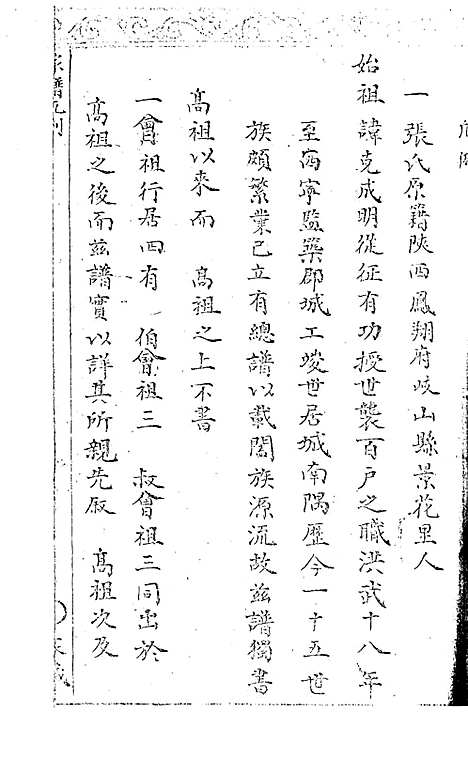 一張氏原籍陝西鳳翔府岐山縣景花里人
始祖諱克成明從征有功授世襲百戶之職洪武十八年
至西寧監築郡城工竣世居城南隅歷今一十五世
族頗繁業已立有總譜以載闔族源流故茲譜獨書
高祖以來而 高祖之上不書
一曾祖行居四有 伯曾祖三 叔曾祖三同出於
高祖之後而茲譜實以詳其所親先敘 高祖次及
家譜凡例